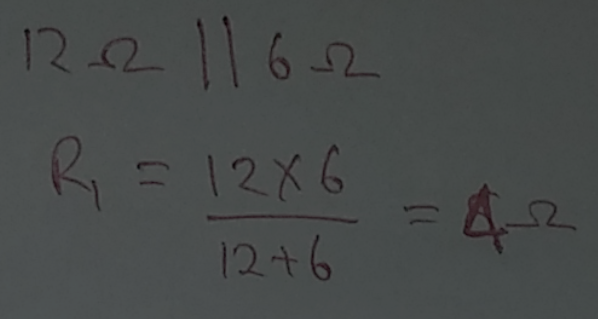 12 Ω || 6 Ω
R₁ = 12 × 6 / 12 + 6 = 4 Ω